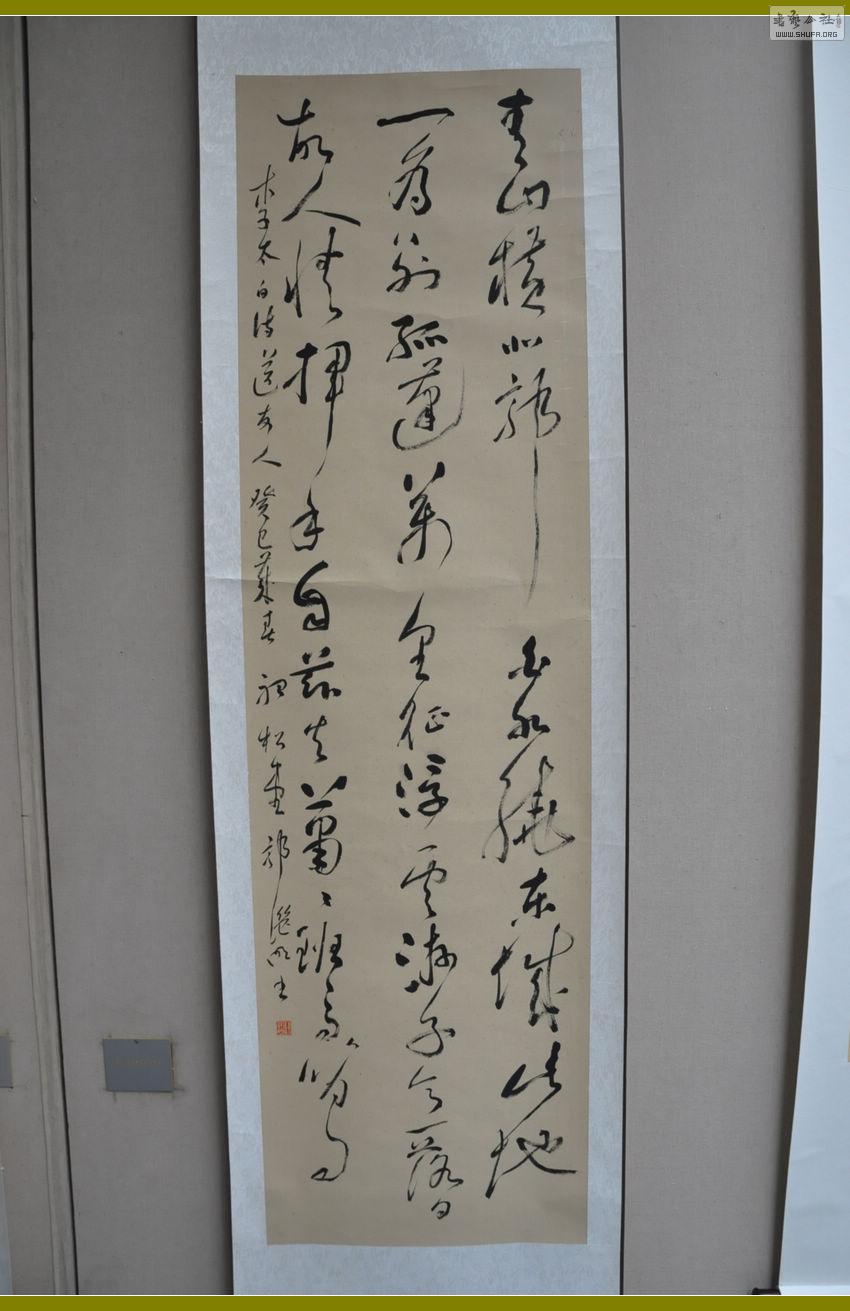 青山橫北郭白水繞東城此地
一為別孤蓬萬里征浮雲游子意落日
故人情揮手自茲去蕭〻班馬鳴
李太白詩送友人癸巳暮春
书艺公社
WWW.SHUFA.ORG